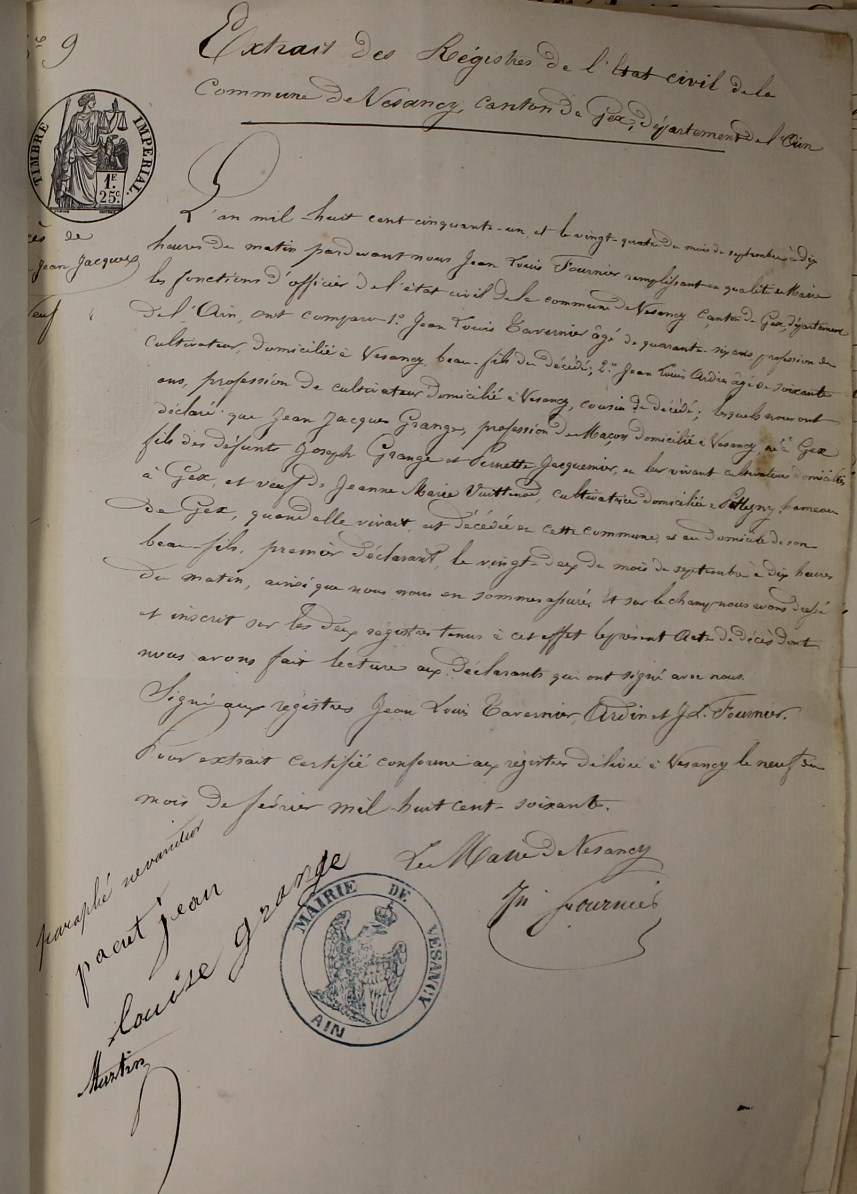 9
Extrait des Régistres de l'Etat civil de la
Commune de Vesancy, Canton de Gex, département de l'Ain
TIMBRE IMPERIAL
1F.
25c.
cès de
Jean Jacques
Veuf
L'an mil huit cent cinquante-un et le vingt-quatre du mois de septembre à dix
heures du matin pardevant nous Jean Louis Fournier remplissant en qualité de Maire
les fonctions d'officier de l'état civil de la commune de Vesancy Canton de Gex, département
de l'Ain, ont comparu 1° Jean Louis Tavernier âgé de quarante-six ans, profession de
cultivateur, domicilié à Vesancy, beau-fils du décédé, 2° Jean Louis Ardin âgé de soixante
ans, profession de cultivateur domicilié à Vesancy, cousin du décédé; lesquels nous ont
déclaré que Jean Jacques Grange, profession de Maçon domicilié à Vesancy, né à Gex
fils des défunts Joseph Grange et Pernette Jacquemier, en leur vivant cultivateurs domiciliés
à Gex, et veuf de Jeanne Marie cultivatrice domiciliée à hameau
de Gex, quand elle vivait, est décédé en cette commune, et au domicile de son
beau-fils, premier déclarant, le vingt-deux du mois de septembre à dix heures
du matin, ainsi que nous nous en sommes assurés, Et sur le champ nous avons dressé
et inscrit sur les deux registres tenus à cet effet le présent Acte de décès dont
nous avons fait lecture aux déclarants qui ont signé avec nous.
Signé aux régistres Jean Louis Tavernier, Ardin et J.L. Fournier.
Pour extrait certifié conforme aux régistres délivré à Vesancy le neuf du
mois de février mil huit cent-soixante.
Le Maire de Vesancy
Fournier
MAIRIE DE VESANCY
AIN
paraphé ne varietur
pacut jean
louise grange
Martin